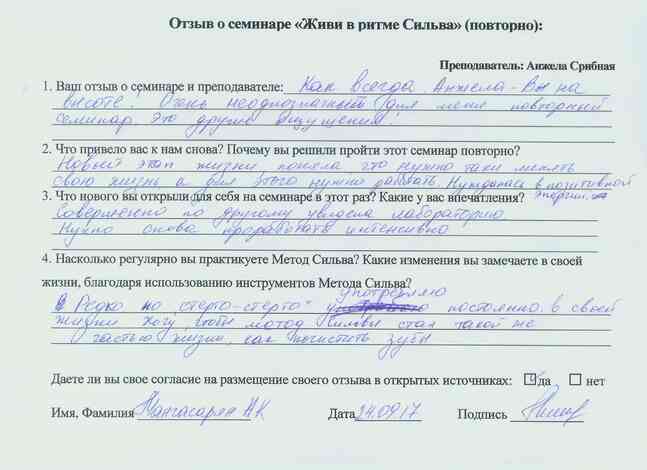 Отзыв о семинаре «Живи в ритме Сильва» (повторно):
Преподаватель: Анжела Срибная
1. Ваш отзыв о семинаре и преподавателе: Как всегда, Анжела - Вы на
высоте! Очень неоднозначный для меня повторный
семинар. Это другие ощущения!
2. Что привело вас к нам снова? Почему вы решили пройти этот семинар повторно?
Новый этап жизни поняла, что нужно таки менять
свою жизнь а для этого нужно работать. Нуждалась в позитивной
энергии.
3. Что нового вы открыли для себя на семинаре в этот раз? Какие у вас впечатления?
Совершенно по другому увидела лабораторию.
Нужно снова проработать интенсивно
4. Насколько регулярно вы практикуете Метод Сильва? Какие изменения вы замечаете в своей
жизни, благодаря использованию инструментов Метода Сильва?
употребляю
Редко но „стерто-стерто" постоянно. в своей
жизни хочу, чтобы метод Сильвы стал такой же
частью жизни, как почистить зубы
Даете ли вы свое согласие на размещение своего отзыва в открытых источниках: да нет
Имя, Фамилия Мангасарян НК Дата 24.09.17 Подпись